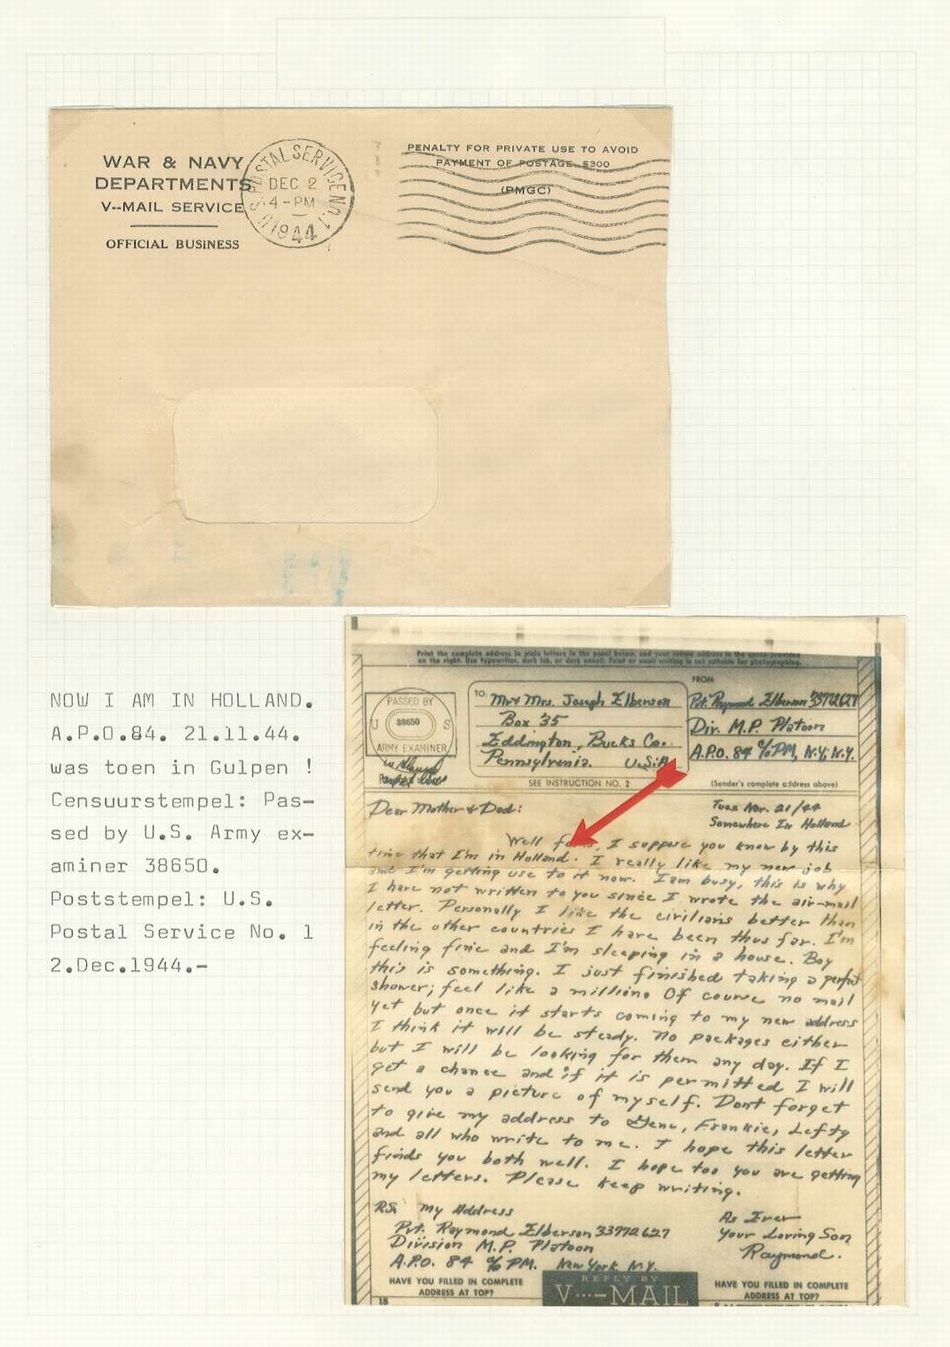 WAR & NAVY
DEPARTMENTS
V--MAIL SERVICE
OFFICIAL BUSINESS
U.S. POSTAL SERVICE NO. 1
DEC 2
4-PM
1944
PENALTY FOR PRIVATE USE TO AVOID
PAYMENT OF POSTAGE $300
(PMGC)
NOW I AM IN HOLLAND.
A.P.O.84. 21.11.44.
was toen in Gulpen !
Censuurstempel: Pas-
sed by U.S. Army ex-
aminer 38650.
Poststempel: U.S.
Postal Service No. 1
2.Dec.1944.-
Print the complete address in plain letters in the panel below, and your return address in the space provided
on the right. Use typewriter, dark ink, or dark pencil. Faint or small writing is not suitable for photographing.
PASSED BY
U 38650 S
ARMY EXAMINER
TO:
Mr & Mrs. Joseph Elberson
Box 35
Eddington, Bucks Co.
Pennsylvania. U.S.A.
SEE INSTRUCTION NO. 2
FROM
Pvt. Raymond Elberson 33772627
Div. M.P. Platoon
A.P.O. 84 c/o PM, N.Y. N.Y.
(Sender's complete address above)
Dear Mother & Dad:
Tues Nov. 21/44
Somewhere In Holland
Well folks, I suppose you know by this
time that I'm in Holland. I really like my new job
and I'm getting use to it now. I am busy, this is why
I have not written to you since I wrote the air-mail
letter. Personally I like the civilians better than
in the other countries I have been thus far. I'm
feeling fine and I'm sleeping in a house. Boy
this is something. I just finished taking a perfect
shower; feel like a million. Of course no mail
yet but once it starts coming to my new address
I think it will be steady. No packages either
but I will be looking for them any day. If I
get a chance and if it is permitted I will
send you a picture of myself. Dont forget
to give my address to Gene, Frankie, Lefty
and all who write to me. I hope this letter
finds you both well. I hope too you are getting
my letters. Please keep writing.
P.S. My Address
Pvt. Raymond Elberson 33772627
Division M.P. Platoon
A.P.O. 84 c/o PM. New York N.Y.
As Ever
Your Loving Son
Raymond.
HAVE YOU FILLED IN COMPLETE
ADDRESS AT TOP?
REPLY BY
V···-MAIL
HAVE YOU FILLED IN COMPLETE
ADDRESS AT TOP?